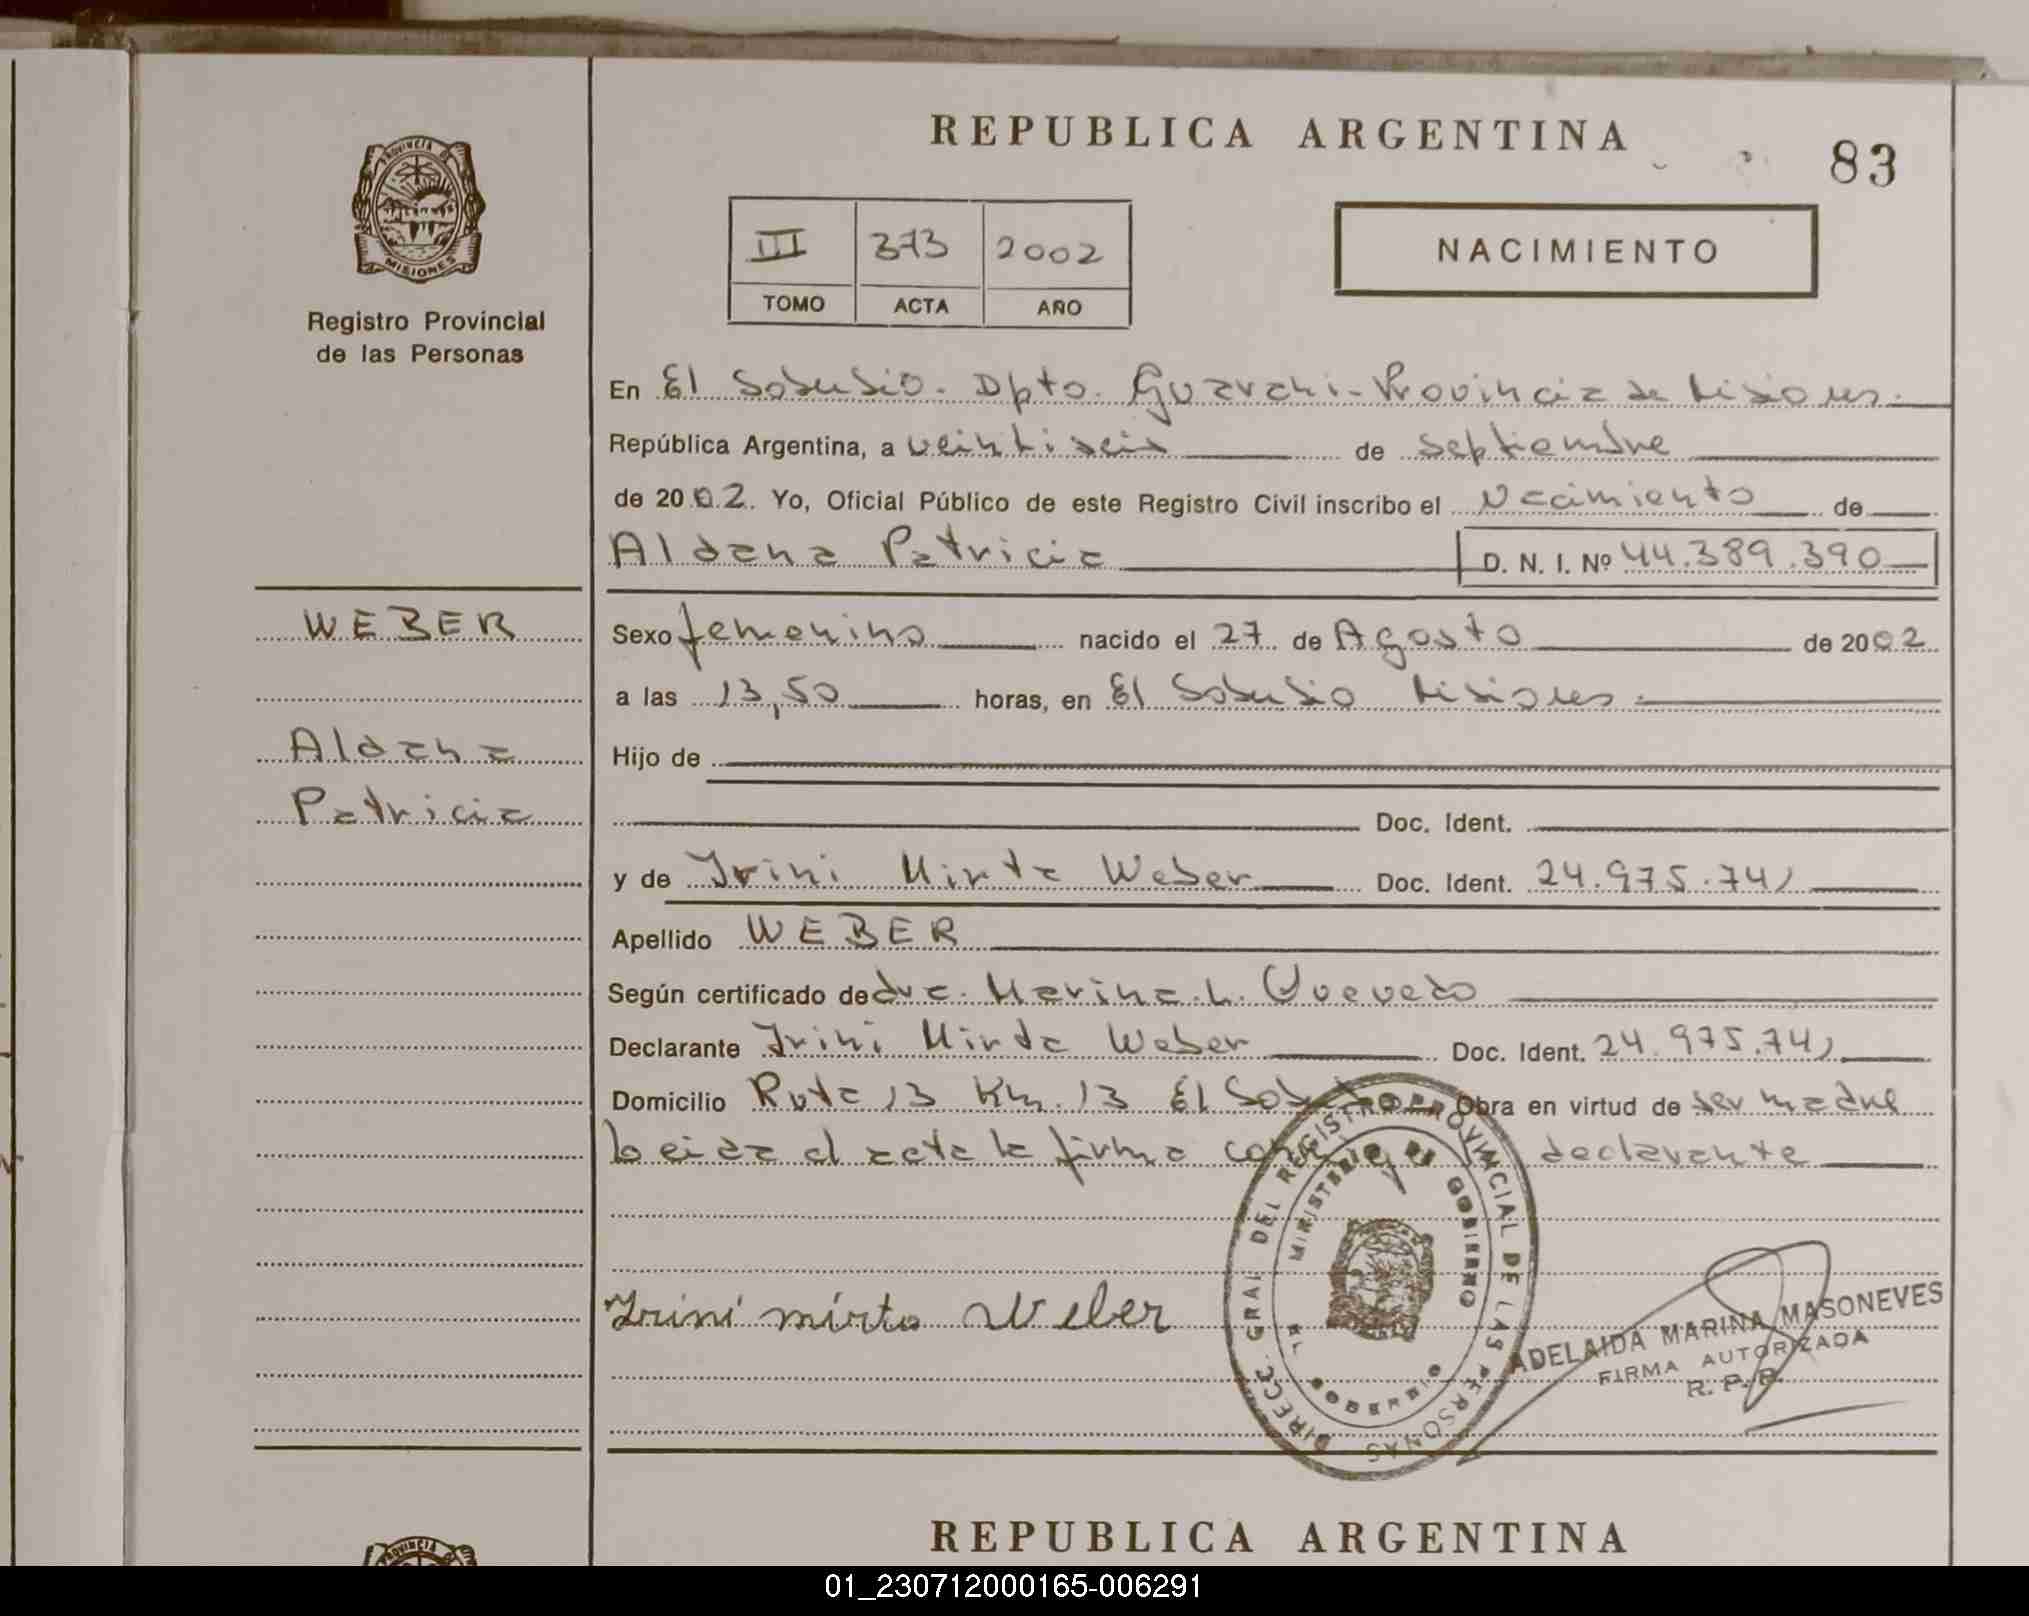 REPUBLICA ARGENTINA
83
PROVINCIA DE
MISIONES
Registro Provincial
de las Personas
III 373 2002
TOMO ACTA AÑO
NACIMIENTO
En El Soberbio. Dpto. Guarani-Provincia de Misiones.
República Argentina, a veintiseis de septiembre
de 2002. Yo, Oficial Público de este Registro Civil inscribo el Nacimiento de
Aldana Patricia D. N. I. Nº 44.389.390
WEBER
Sexo femenino nacido el 27 de Agosto de 2002
a las 13,50 horas, en El Soberbio Misiones.
Aldana
Hijo de
Patricia
Doc. Ident.
y de Irini Mirta Weber Doc. Ident. 24.975.741
Apellido WEBER
Según certificado de dra. Marina L. Quevedo
Declarante Irini Mirta Weber Doc. Ident. 24.975.741
Domicilio Ruta 13 Km. 13 El Soberbio Obra en virtud de ser madre
Leida el acta la firma declarante
DIRECC. GRAL. DEL REGISTRO PROVINCIAL DE LAS PERSONAS
MINISTERIO DE GOBIERNO
EL SOBERBIO
Irini mirta Weber
ADELAIDA MARINA MASONEVES
FIRMA AUTORIZADA
R. P. P.
REPUBLICA ARGENTINA
PROVINCIA DE
01_230712000165-006291